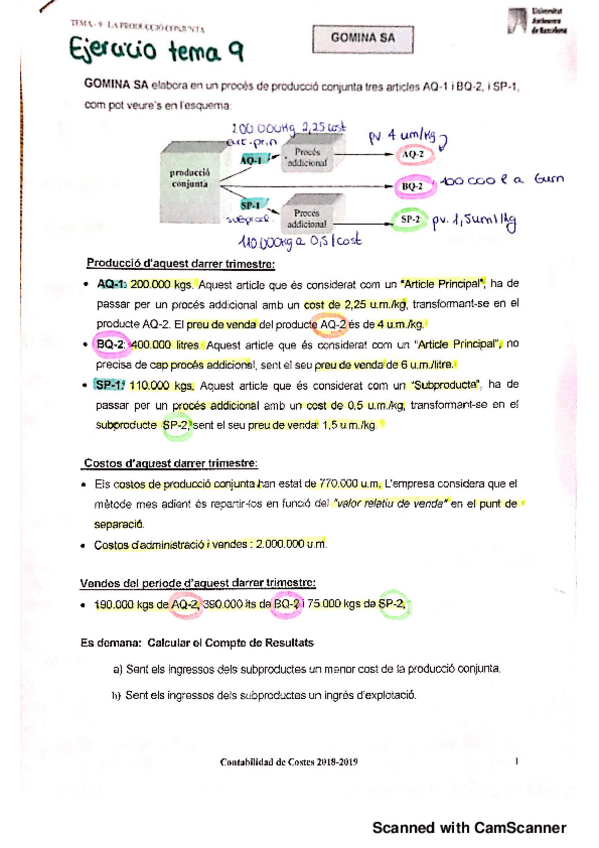 TEMA - 9 LA PRODUCCIÓ CONJUNTA
Universitat
Autònoma
de Barcelona
Ejercicio tema 9
GOMINA SA
GOMINA SA elabora en un procés de producció conjunta tres articles AQ-1 i BQ-2, i SP-1,
com pot veure's en l'esquema:
200 000Kg 2,25 cost
art. prin
pv 4 um/kg
producció
conjunta
AQ-1
Procés
addicional
AQ-2
BQ-2
400 000 l a 6um
SP-1
subprod.
Procés
addicional
SP-2
pv. 1,5um/kg
110.000kg a 0,5/cost
Producció d'aquest darrer trimestre:
• AQ-1: 200.000 kgs. Aquest article que és considerat com un "Article Principal", ha de
passar per un procés addicional amb un cost de 2,25 u.m./kg, transformant-se en el
producte AQ-2. El preu de venda del producte AQ-2 és de 4 u.m./kg.
• BQ-2: 400.000 litres Aquest article que és considerat com un "Article Principal", no
precisa de cap procés addicional, sent el seu preu de venda de 6 u.m./litre.
• SP-1: 110.000 kgs. Aquest article que és considerat com un "Subproducte", ha de
passar per un procés addicional amb un cost de 0,5 u.m./kg, transformant-se en el
subproducte SP-2, sent el seu preu de venda: 1,5 u.m./kg
Costos d'aquest darrer trimestre:
• Els costos de producció conjunta han estat de 770.000 u.m. L'empresa considera que el
mètode mes adient és repartir-los en funció del "valor relatiu de venda" en el punt de
separació.
• Costos d'administració i vendes : 2.000.000 u.m.
Vendes del periode d'aquest darrer trimestre:
• 190.000 kgs de AQ-2, 390.000 lts de BQ-2 i 75.000 kgs de SP-2,
Es demana: Calcular el Compte de Resultats
a) Sent els ingressos dels subproductes un menor cost de la producció conjunta.
b) Sent els ingressos dels subproductes un ingrés d'explotació.
Contabilidad de Costes 2018-2019
1
Scanned with CamScanner